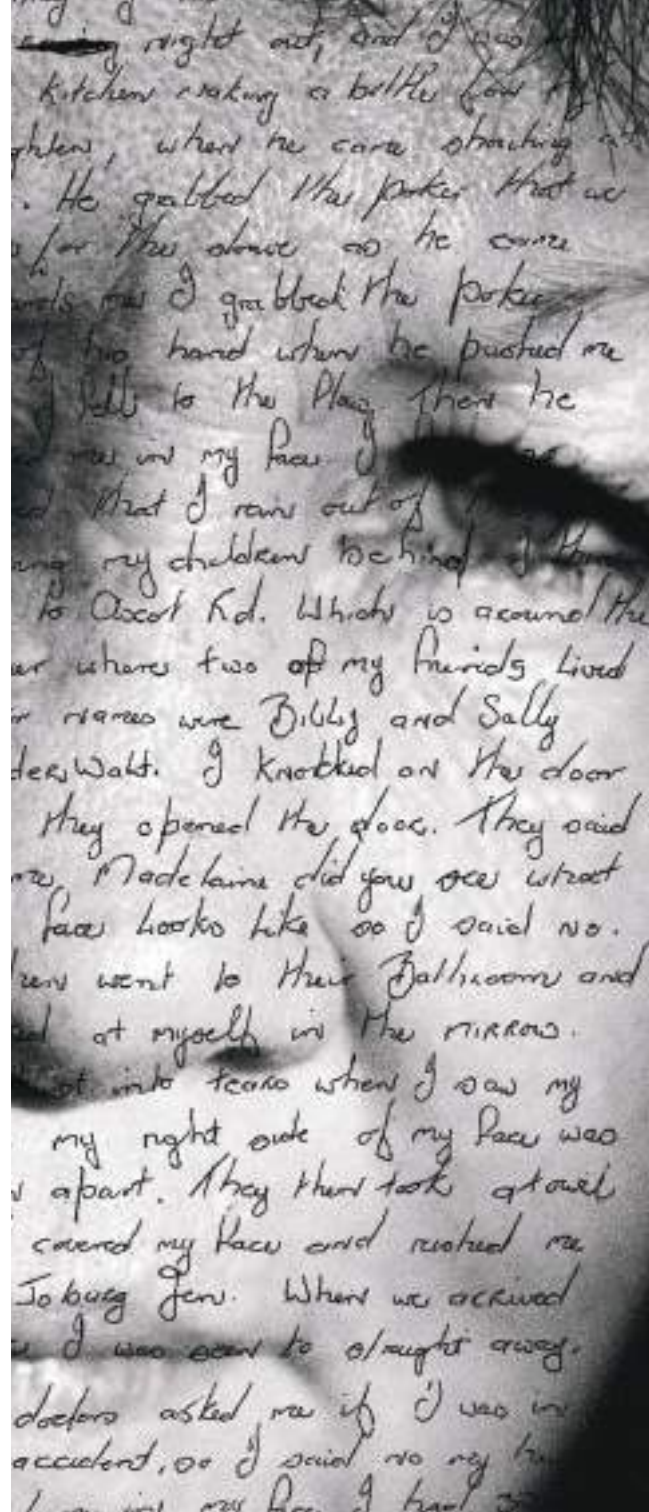 night out, and I was
kitchen making a bottle for my
, when he came shouting at
. He grabbed the poker that we
for the stove as he came
me I grabbed the poker
of his hand when he pushed me
I fell to the floor. Then he
me in my face. I
that I ran out of
my children behind I then
to Ascot Rd. Which is around the
where two of my friends lived
names were Billy and Sally
derWalt. I knocked on the door
they opened the door. They said
me, Madelaine did you see what
face looks like so I said no.
then went to their Bathroom and
at myself in the mirror.
into tears when I saw my
my right side of my face was
apart. They then took a towel
covered my face and rushed me
Joburg Gen. When we arrived
I was seen to straight away.
doctors asked me if I was in
accident, so I said no my
my face I had